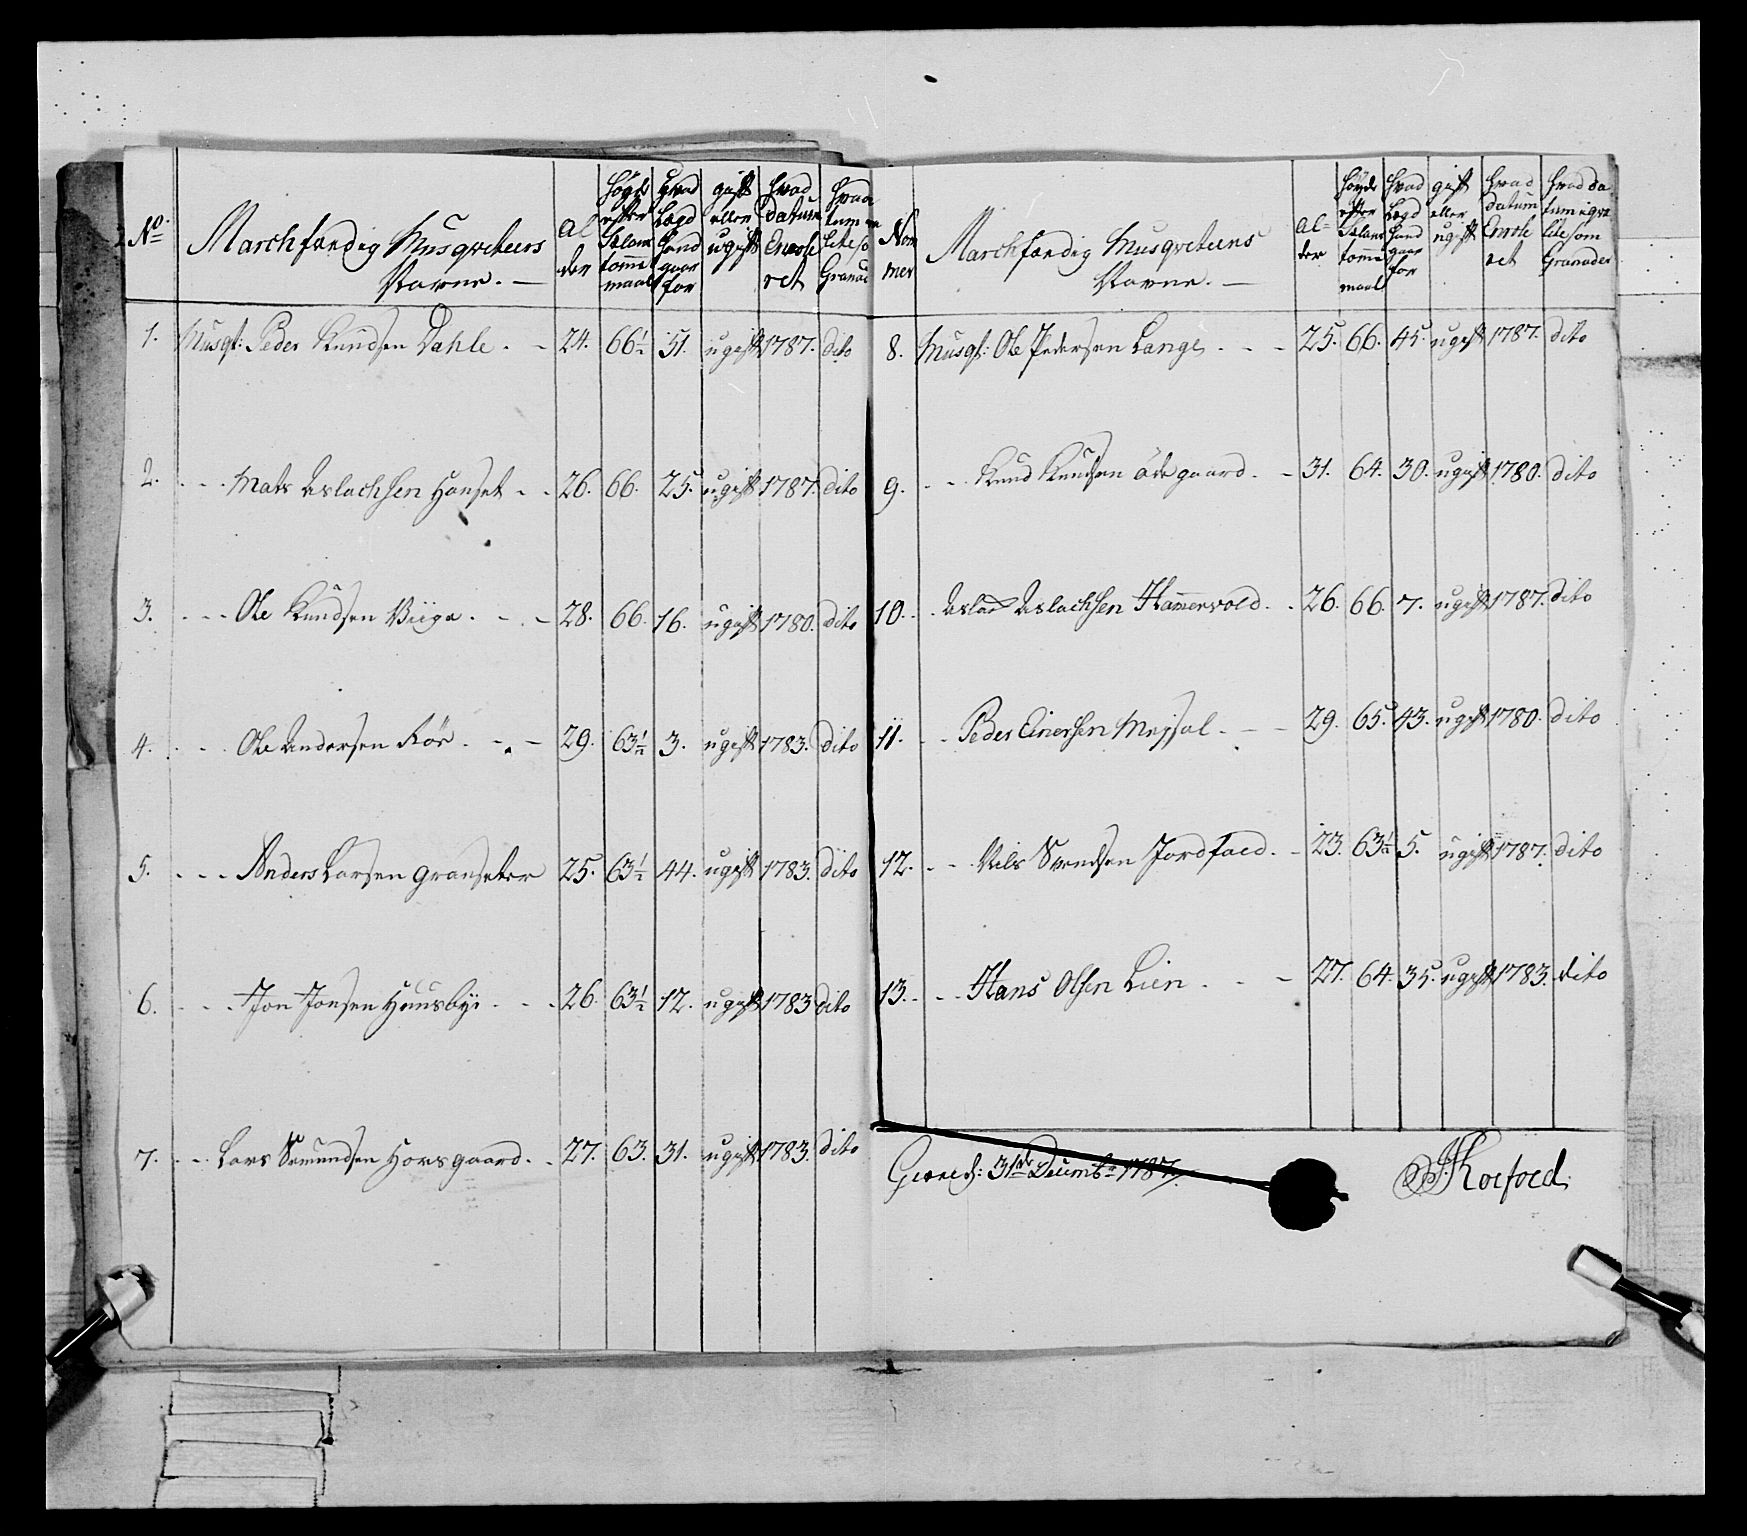 No. Marchfærdig Musqveteers Navne. — Alder Høyde efter Sælans tomme maal Hvad Lægd Hand gaar for gift eller ugift Hvad datum Enrolleret Hvad
1. Musqt: Peder Knudsen Dahle. - 24. 66½ 51. ugift 1787. dito
2. - - - Mats Aslachsen Hanset - - 26. 66. 25. ugift 1787. dito
3. - - - Ole Knudsen Viiga. - - - 28. 66. 16. ugift 1780. dito
4. - - - Ole Andersen Röe. - - - 29. 63½ 3. ugift 1783. dito
5. - - - Anders Larsen Granseter 25. 63½ 44. ugift 1783. dito
6. - - - Jon Jonsen Huusbye - - - 26. 63½ 12. ugift 1783 dito
7. - - Lars Semundsen Horsgaard. - 27. 63. 31. ugift 1783. dito
Nommer Marchfærdig Musqveteers Navne. — Alder Høyde efter Sælans tomme maal Hvad Lægd Hand gaar for gift eller ugift Hvad datum Enrolleret Hvad datum igvalitè som Granader
8. Musqt: Ole Pedersen Lange - - - 25. 66. 45. ugift 1787. dito
9. - - Knud Knudsen Ödegaard. - 31. 64. 30. ugift 1780. dito
10. - Aslach Aslachsen Hamersvold. - 26. 66. 7. ugift 1787. dito
11. - - Peder Einersen Mejsal. - - 29. 65. 43. ugift 1780. dito
12. - - Nils Svendsen Jordfald. - 23. 63½ 5. ugift 1787. dito
13. - - Hans Olsen Lien. - - 27. 64. 35. ugift 1783. dito
31te Decembr 1787. Koefoed.